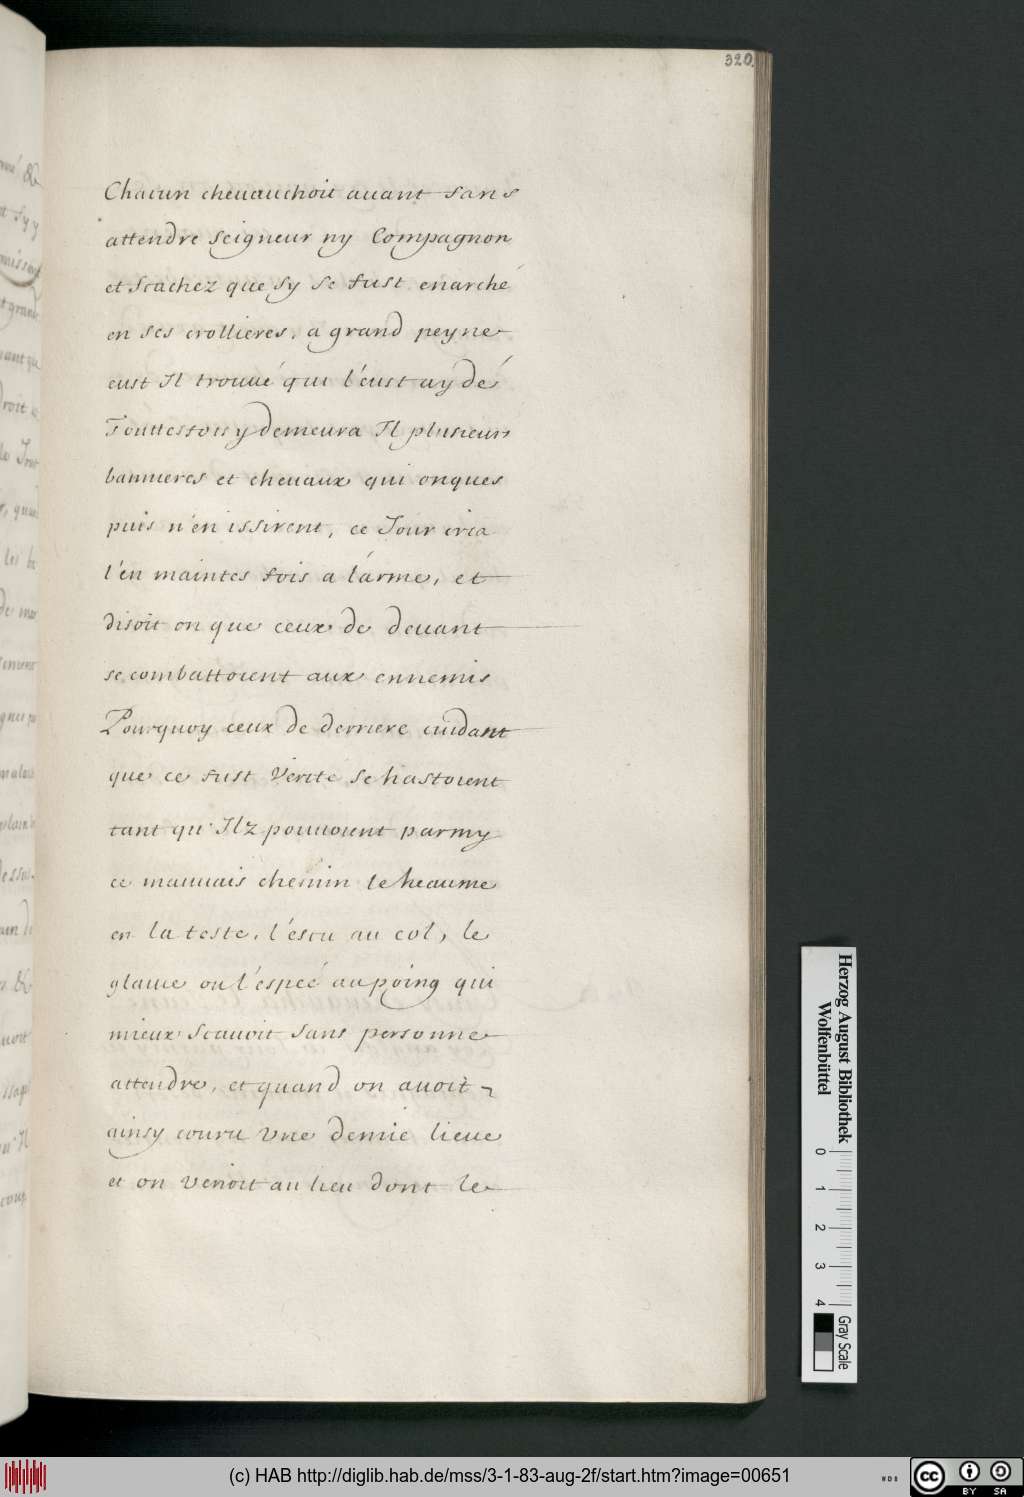 320.
Chacun cheuauchoit auant sans
attendre seigneur ny Compagnon
et scachez que sy se fust enarché
en ses crollieres, a grand peyne
eust Il trouué qui l'eust aydé
Touttesfois y demeura Il plusieurs
bannieres et cheuaux qui onques
puis n'en issirent, ce Jour cria
l'en maintes fois a l'arme, et
disoit on que ceux de deuant
se combattoient aux ennemis
Pourquoy ceux de derriere cuidant
que ce fust Verité se hastoient
tant qu'Ilz pouuoient parmy
ce mauuais chemin le heaume
en la teste, l'escu au col, le
glaiue ou l'espeé au poing qui
mieux scauoit sans personne
attendre, et quand on auoit
ainsy couru vne demie lieue
et on venoit au lieu dont le
Herzog August Bibliothek
Wolfenbüttel
0 1 2 3 4
Gray Scale
(c) HAB http://diglib.hab.de/mss/3-1-83-aug-2f/start.htm?image=00651
cc BY SA